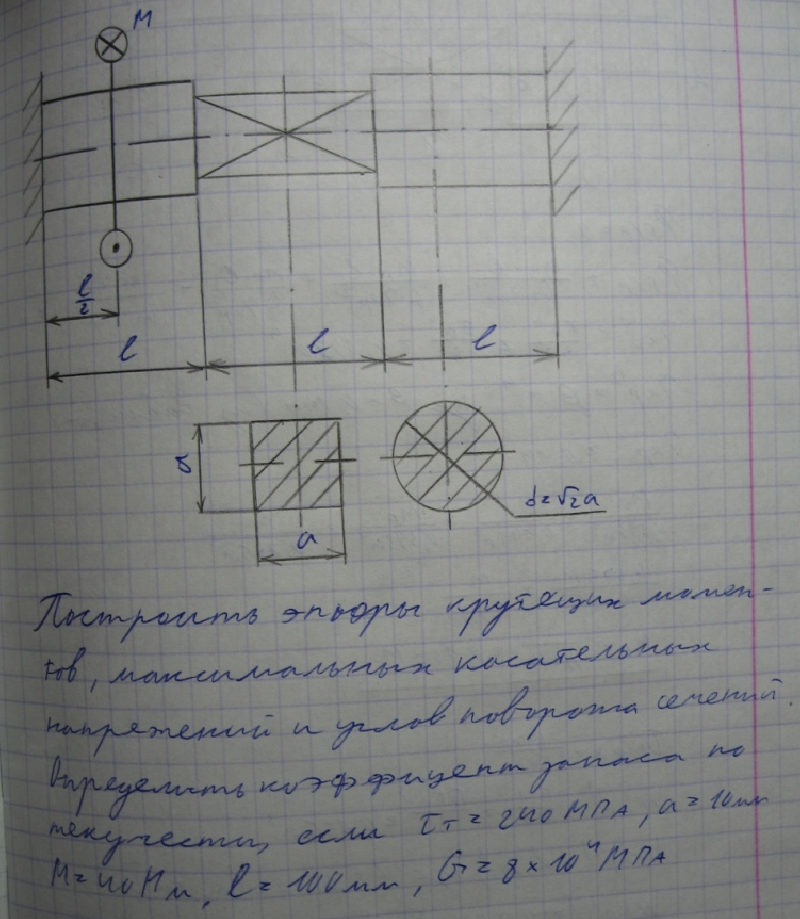 M
l/2
l
l
l
a
a
d=√2a
Построить эпюры крутящих момен-
тов, максимальных касательных
напряжений и углов поворота сечений.
Определить коэффициент запаса по
текучести, если τт=240 МПа, a=10мм
M=40Нм, l=100мм, G=8×10⁴МПа